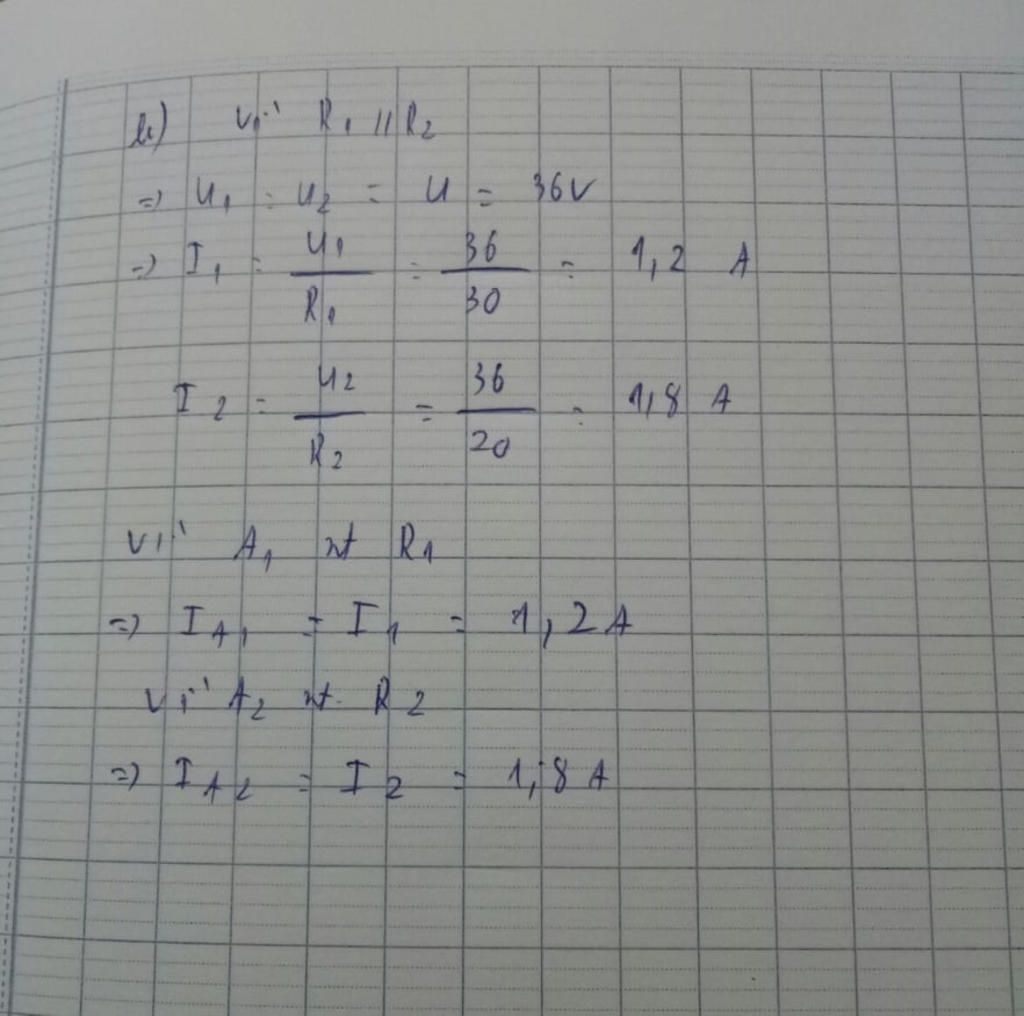 b) vì R1 // R2
=> U1 = U2 = U = 36V
=> I1 = U1/R1 = 36/30 = 1,2 A
I2 = U2/R2 = 36/20 = 1,8 A
vì A1 nt R1
=> IA1 = I1 = 1,2A
vì A2 nt R2
=> IA2 = I2 = 1,8 A